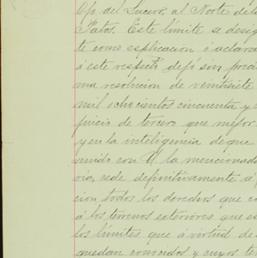 del Lucero, al Norte de l
Patos. Este límite se desig
te como esplicacion ó aclara
á este respecto dejó sin
una resolucion de veintisiete
mil ochocientos cincuenta y
juicio de tercero que mejor
y en la inteligencia de que
nuido con la mencionada
cede definitivamente á
cion todos los derechos que
á los terrenos esteriores que es
los límites que á virtud de
quedan conocidos y cuyos te